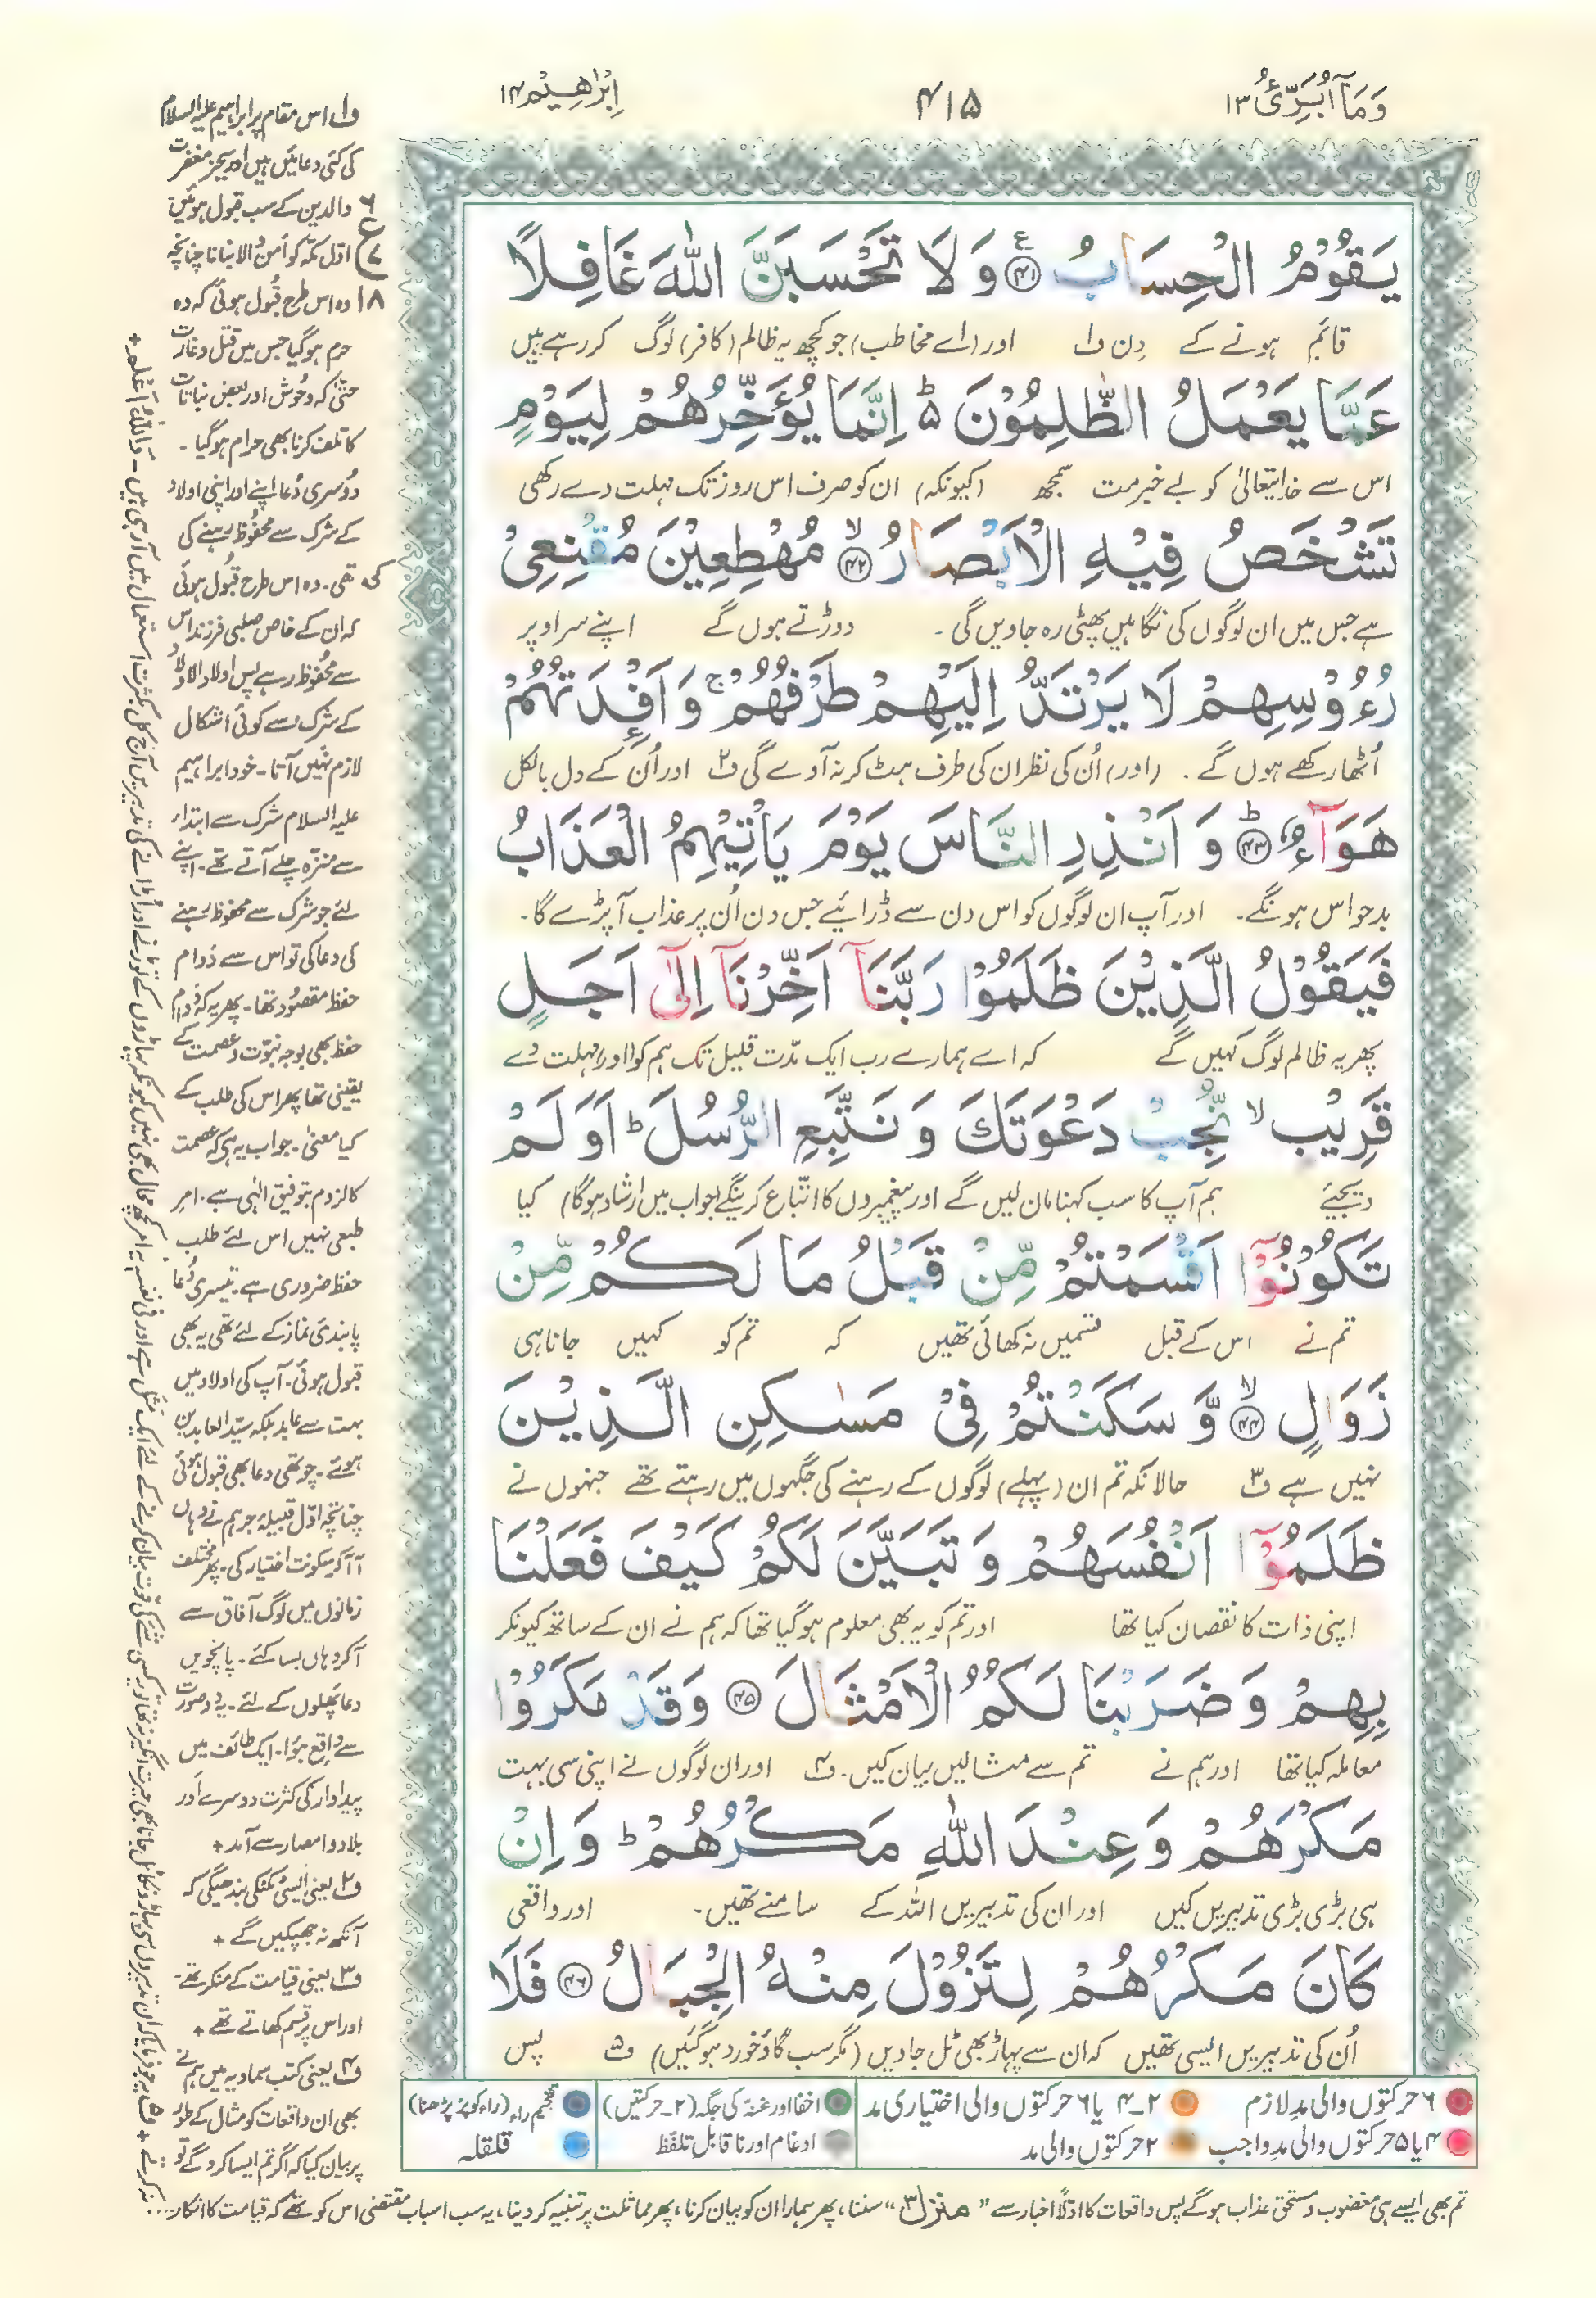 وَمَآ اُبَرِّئُ ۱۳
۴۱۵
اِبْرٰهِیْم ۱۴
یَقُوْمُ الْحِسَابُ ۴۱ وَ لَا تَحْسَبَنَّ اللّٰهَ غَافِلًا
قائم ہونے کے دِن ف۱ اور (اے مخاطب) جو کچھ یہ ظالم (کافر) لوگ کر رہے ہیں
عَمَّا یَعْمَلُ الظّٰلِمُوْنَ ؕ۬ اِنَّمَا یُؤَخِّرُهُمْ لِیَوْمٍ
اس سے خدا تعالیٰ کو بے خبر مت سمجھ (کیونکہ) ان کو صرف اس روز تک مہلت دے رکھی
تَشْخَصُ فِیْهِ الْاَبْصَارُ ۙ۴۲ مُهْطِعِیْنَ مُقْنِعِیْ
ہے جس میں ان لوگوں کی نگاہیں پھٹی رہ جاویں گی۔ دوڑتے ہوں گے اپنے سر اوپر
رُءُوْسِهِمْ لَا یَرْتَدُّ اِلَیْهِمْ طَرْفُهُمْ ۚ وَ اَفْـِٕدَتُهُمْ
اُٹھا رکھے ہوں گے۔ (اور) اُن کی نظر ان کی طرف ہٹ کر نہ آوے گی ف۲ اور اُن کے دل بالکل
هَوَآءٌ ؕ۴۳ وَ اَنْذِرِ النَّاسَ یَوْمَ یَاْتِیْهِمُ الْعَذَابُ
بدحواس ہونگے۔ اور آپ ان لوگوں کو اس دن سے ڈرائیے جس دن اُن پر عذاب آپڑے گا۔
فَیَقُوْلُ الَّذِیْنَ ظَلَمُوْا رَبَّنَآ اَخِّرْنَآ اِلٰۤی اَجَلٍ
پھر یہ ظالم لوگ کہیں گے کہ اے ہمارے رب ایک مدّت قلیل تک ہم کو (اور) مہلت دے
قَرِیْبٍ ۙ نُّجِبْ دَعْوَتَكَ وَ نَتَّبِعِ الرُّسُلَ ؕ اَوَ لَمْ
دیجئے ہم آپ کا سب کہنا مان لیں گے اور پیغمبروں کا اتباع کرینگے (جواب میں ارشاد ہوگا) کیا
تَكُوْنُوْۤا اَقْسَمْتُمْ مِّنْ قَبْلُ مَا لَكُمْ مِّنْ
تم نے اس کے قبل قسمیں نہ کھائی تھیں کہ تم کو کہیں جانا ہی
زَوَالٍ ۙ۴۴ وَّ سَكَنْتُمْ فِیْ مَسٰكِنِ الَّذِیْنَ
نہیں ہے ف۳ حالانکہ تم ان (پہلے) لوگوں کے رہنے کی جگہوں میں رہتے تھے جنہوں نے
ظَلَمُوْۤا اَنْفُسَهُمْ وَ تَبَیَّنَ لَكُمْ كَیْفَ فَعَلْنَا
اپنی ذات کا نقصان کیا تھا اور تم کو یہ بھی معلوم ہوگیا تھا کہ ہم نے ان کے ساتھ کیونکر
بِهِمْ وَ ضَرَبْنَا لَكُمُ الْاَمْثَالَ ۴۵ وَقَدْ مَكَرُوْا
معاملہ کیا تھا اور ہم نے تم سے مثالیں بیان کیں۔ ف۴ اور ان لوگوں نے اپنی سی بہت
مَكْرَهُمْ وَ عِنْدَ اللّٰهِ مَكْرُهُمْ ؕ وَ اِنْ
ہی بڑی بڑی تدبیریں کیں اور ان کی تدبیریں اللہ کے سامنے تھیں۔ اور واقعی
كَانَ مَكْرُهُمْ لِتَزُوْلَ مِنْهُ الْجِبَالُ ۴۶ فَلَا
اُن کی تدبیریں ایسی تھیں کہ ان سے پہاڑ بھی ٹل جاویں (مگر سب گاؤ خورد ہوگئیں) ف۵ پس
۶ حرکتوں والی مدِ لازم
۲۔۴ یا ۶ حرکتوں والی اختیاری مد
اخفا اور غنّہ کی جگہ (۲۔ حرکتیں)
تفخیم راء (راء کو پُر پڑھنا)
۴ یا ۵ حرکتوں والی مدِ واجب
۲ حرکتوں والی مد
ادغام اور ناقابل تلفّظ
قلقلہ
ف۱ اس مقام پر ابراہیم علیہ السلام
کی کئی دعائیں ہیں اور بجز مغفرت
والدین کے سب قبول ہوئیں
اوّل مکّہ کو اٰمن والا بنانا چنانچہ
وہ اس طرح قبول ہوئی کہ وہ
حرم ہوگیا جس میں قتل و غارت
حتّٰی کہ وحوش اور بعض نباتات
کا تلف کرنا بھی حرام ہوگیا۔
دوسری دُعا اپنے اور اپنی اولاد
کے شرک سے محفوظ رہنے کی
تھی۔ وہ اس طرح قبُول ہوئی
کہ ان کے خاص صلبی فرزند اس
سے محفُوظ رہے پس اولاد الاولاد
کے شرک سے کوئی اشکال
لازم نہیں آتا۔ خود ابراہیم
علیہ السلام شرک سے ابتداء
سے منزّہ چلے آتے تھے۔ اپنے
لئے جو شرک سے محفوظ رہنے
کی دعا کی تو اس سے دَوام
حفظ مقصُود تھا۔ پھر یہ کہ دَوام
حفظ بھی بوجہ نبوّت و عصمت کے
یقینی تھا پھر اس کی طلب کے
کیا معنٰی۔ جواب یہ ہی کہ عصمت
کا لزوم بتوفیق الٰہی ہے۔ امرِ
طبعی نہیں اس لئے طلب
حفظ ضروری ہے۔ تیسری دُعا
پابندیٔ نماز کے لئے تھی یہ بھی
قبول ہوئی۔ آپ کی اولاد میں
بہت سے عابد بلکہ سیّد العابدین
ہوئے۔ چوتھی دعا بھی قبول ہوئی
چنانچہ اوّل قبیلۂ جرہم نے وہاں
آ آ کر سکونت اختیار کی۔ پھر مختلف
زمانوں میں لوگ آفاق سے
آ کر وہاں بسا کئے۔ پانچویں
دعا پھلوں کے لئے۔ یہ دو صورت
سے واقع ہوُا۔ ایک طائف میں
پیداوار کی کثرت دوسرے اور
بلاد و امصار سے آمد +
ف۲ یعنی ایسی ٹکٹکی بندھیگی کہ
آنکھ نہ جھپکیں گے +
ف۳ یعنی قیامت کے منکر تھے۔
اور اس پر قسم کھاتے تھے +
ف۴ یعنی کتب سماویہ میں ہم نے
بھی ان واقعات کو مثال کے طور
پر بیان کیا کہ اگر تم ایسا کرو گے تو
تم بھی ایسے ہی مغضوب و مستحق عذاب ہوگے پس واقعات کا اوّلاً اخبار سے سننا، پھر ہمارا ان کو بیان کرنا، پھر مماثلت پر تنبیہ کر دینا، یہ سب اسباب مقتضی اس کو تھے کہ قیامت کا انکار
نہ کرتے +
منزل ۳